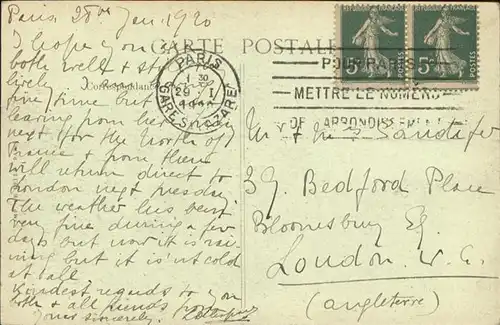 Paris 28th Jan. 1920
CARTE POSTALE
Correspondance
I hope you
both well & still
lively
fine time but
leaving here
next for the North of
France & from there
will return direct to
London next Tuesday
The weather has been
very fine during a few
days but now it is rai-
ning but it isn't cold
at all.
Kindest regards to you
both & all friends from
Yours Sincerely.
PARIS
1 30
29 - I
GARE St LAZARE
5c
5c
POUR PARIS
METTRE LE NUMERO
DE L'ARRONDISSEMENT
Mr & Mrs Sandifer
39. Bedford Place
Bloomsbury Sq.
London. W. C.
(Angleterre)